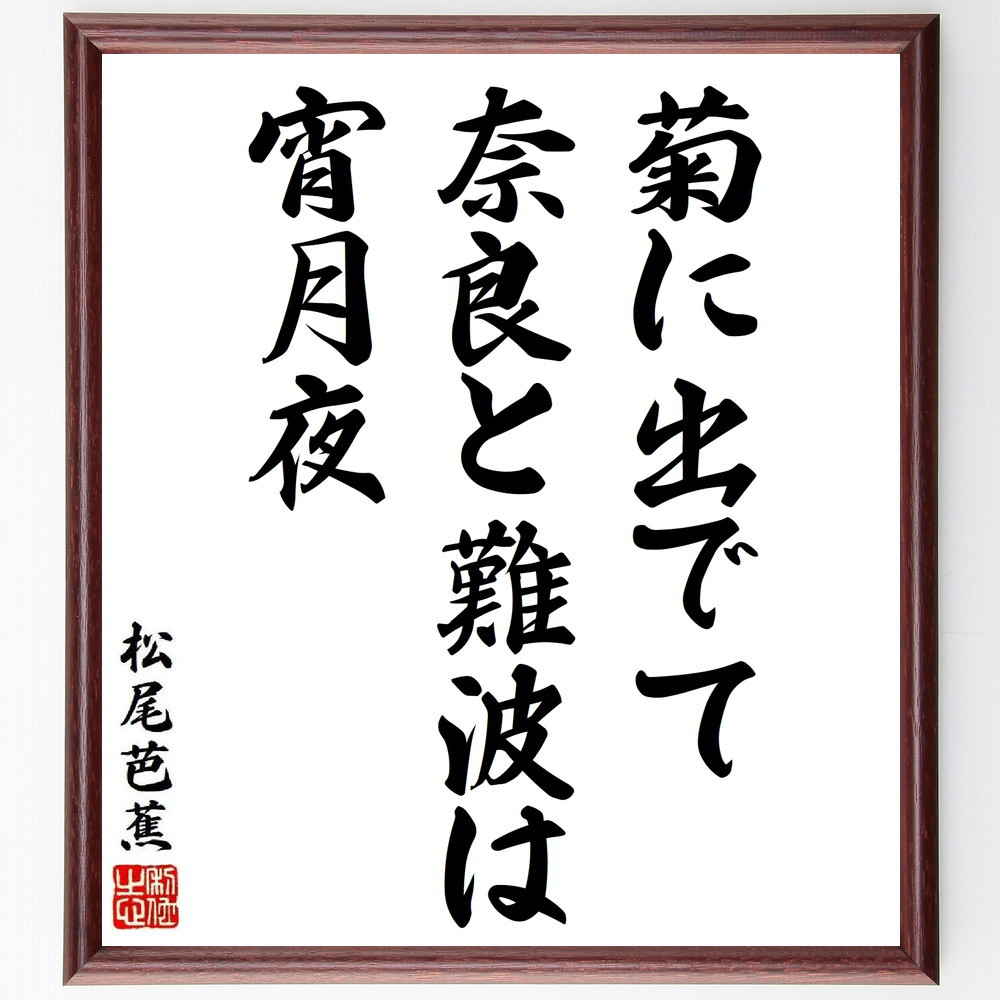 菊に出でて
奈良と難波は
宵月夜
松尾芭蕉